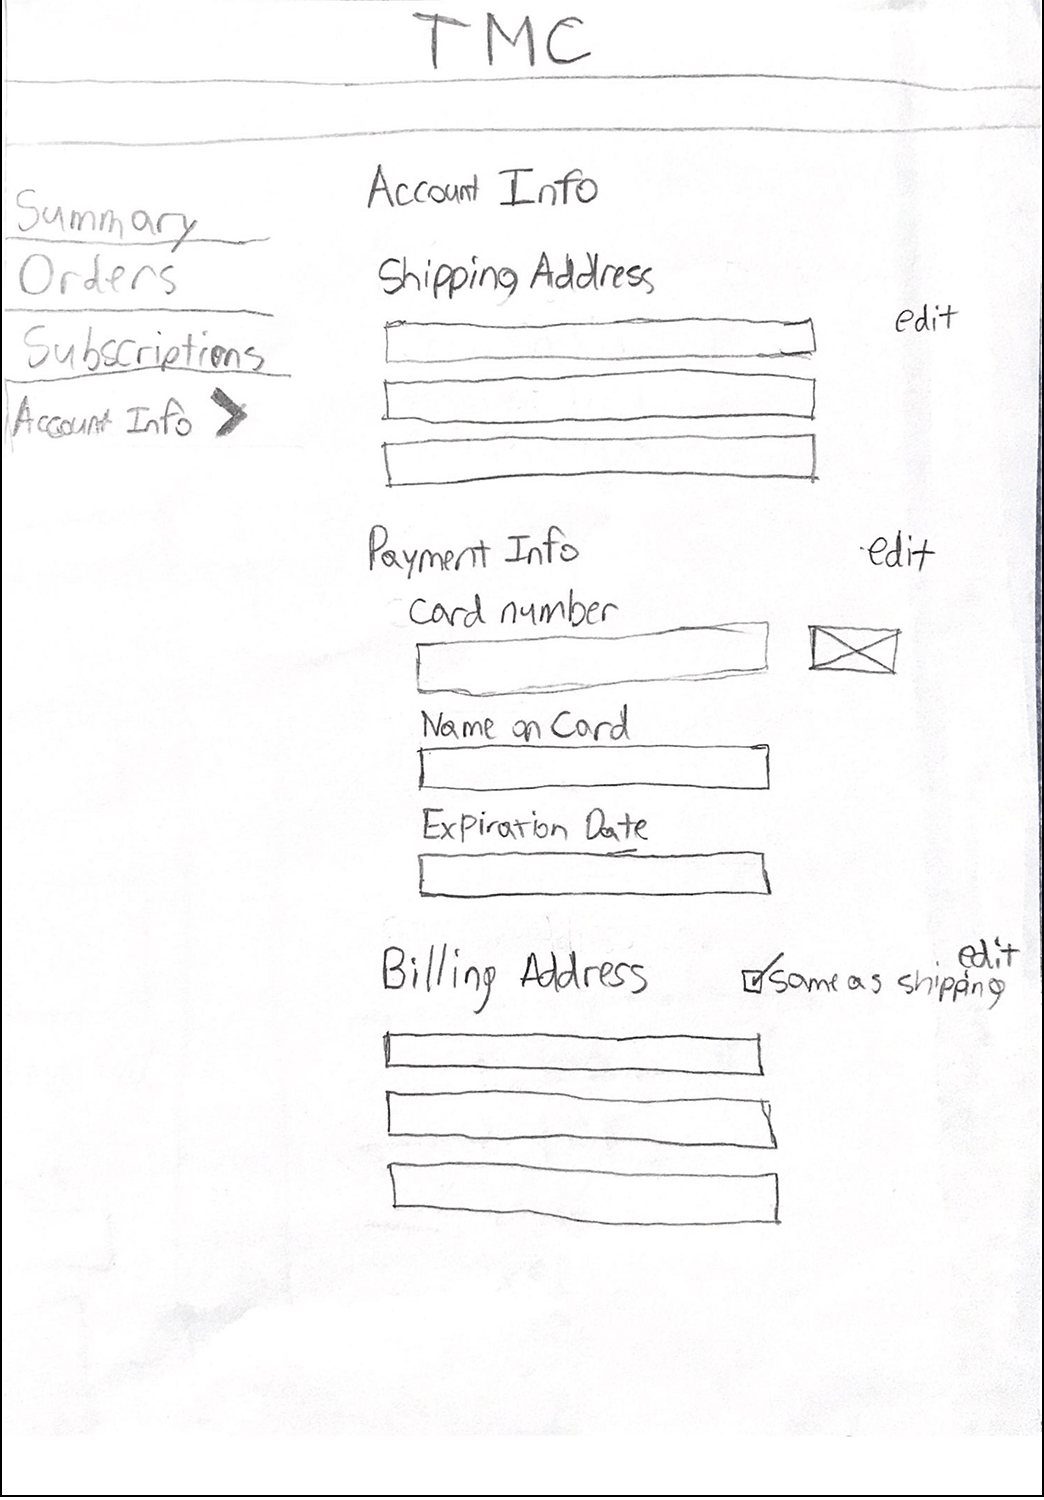 TMC
Summary
Orders
Subscriptions
Account Info
Account Info
Shipping Address
edit
Payment Info
edit
Card number
Name on Card
Expiration Date
Billing Address
edit
same as shipping